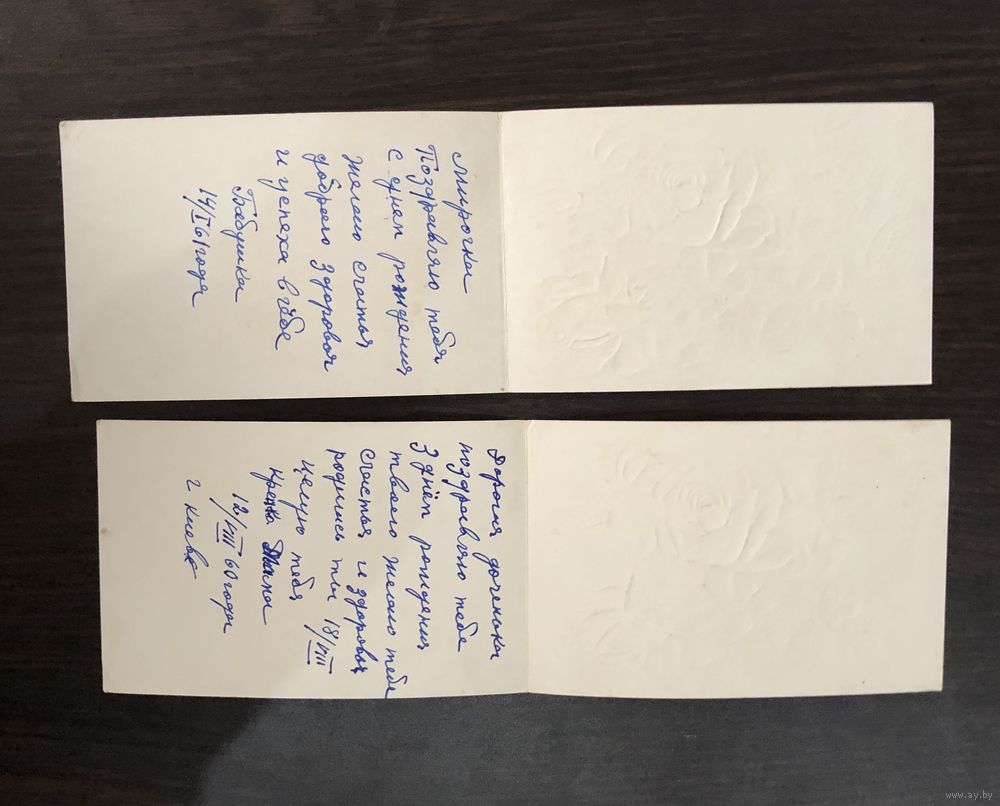 Мирочка
Поздравляю тебя
с днем рождения
Желаю счастья
доброго здоровья
и успеха в учебе
Бабушка
14/I 61 года
Дорогая доченька
поздравляю тебе
З днём рождения
твоего желаю тебе
счастья и здоровья
родились ти 18/VIII
целую тебя
крепко
12/VIII 60 года
г Киев
www.ay.by